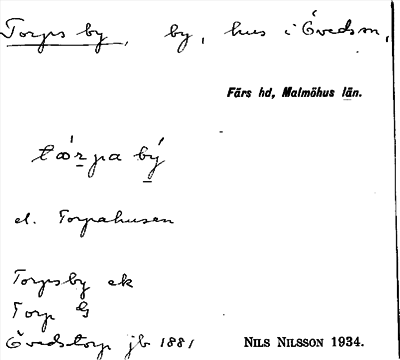 Torps by, by, hus i Övedsm,
Färs hd, Malmöhus län.
tórpa bý
el. Torpahusen
Torpsby ek
Torp G
Övedstorp jb 1881
NILS NILSSON 1934.